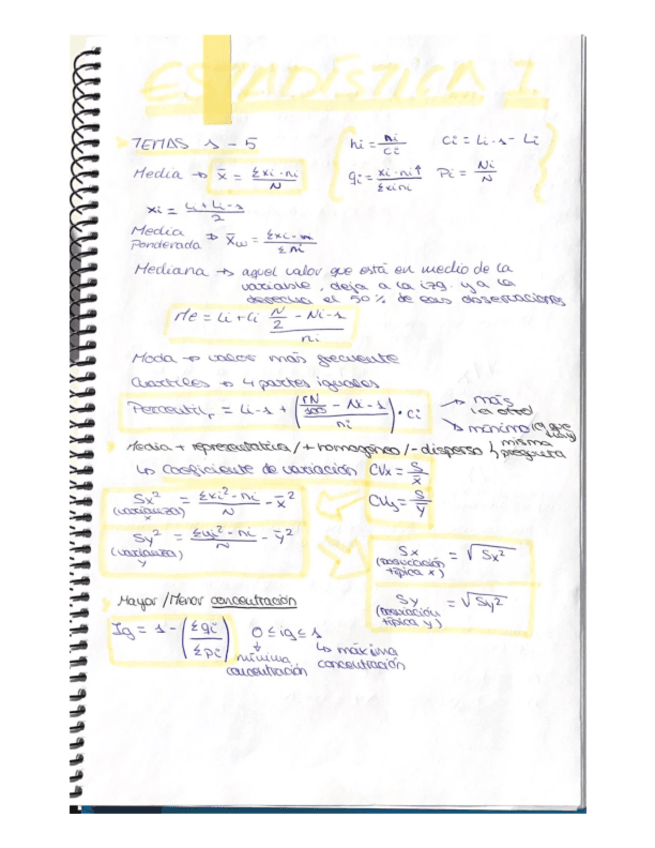 ESTADÍSTICA I.
TEMAS 1 - 5
hi = ni/ci    Ci = Li-1 - Li
Media → x̄ = Σxi·ni / N
qi = xi·ni↑ / Σxini    Pi = Ni/N
xi = Li + Li-1 / 2
Media Ponderada → x̄w = Σxi·wi / Σwi
Mediana → aquel valor que está en medio de la
variable, deja a la izq. y a la
derecha el 50% de sus observaciones
Me = Li + Ci (N/2 - Ni-1) / ni
Moda → valor más frecuente
Cuartiles → 4 partes iguales
Percentil r = Li-1 + ((rN/100 - Ni-1) / ni) · ci
→ más (el otro)
→ mínimo (el que hay)
Media + representativa / + homogéneo / - disperso ↳ misma pregunta
↳ Coeficiente de variación CVx = S/x̄
CVy = S/y
Sx² (varianza x) = Σxi²·ni / N - x̄²
Sy² (varianza y) = Σyi²·ni / N - ȳ²
Sx (desviación típica x) = √Sx²
Sy (desviación típica y) = √Sy²
Mayor / Menor concentración
Ig = 1 - (Σqi / Σpi)    0 ≤ ig ≤ 1
↓ mínima concentración
↳ máxima concentración